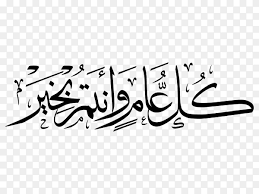 كُلُّ عَامٍ وَأَنتُم بِخَيْر